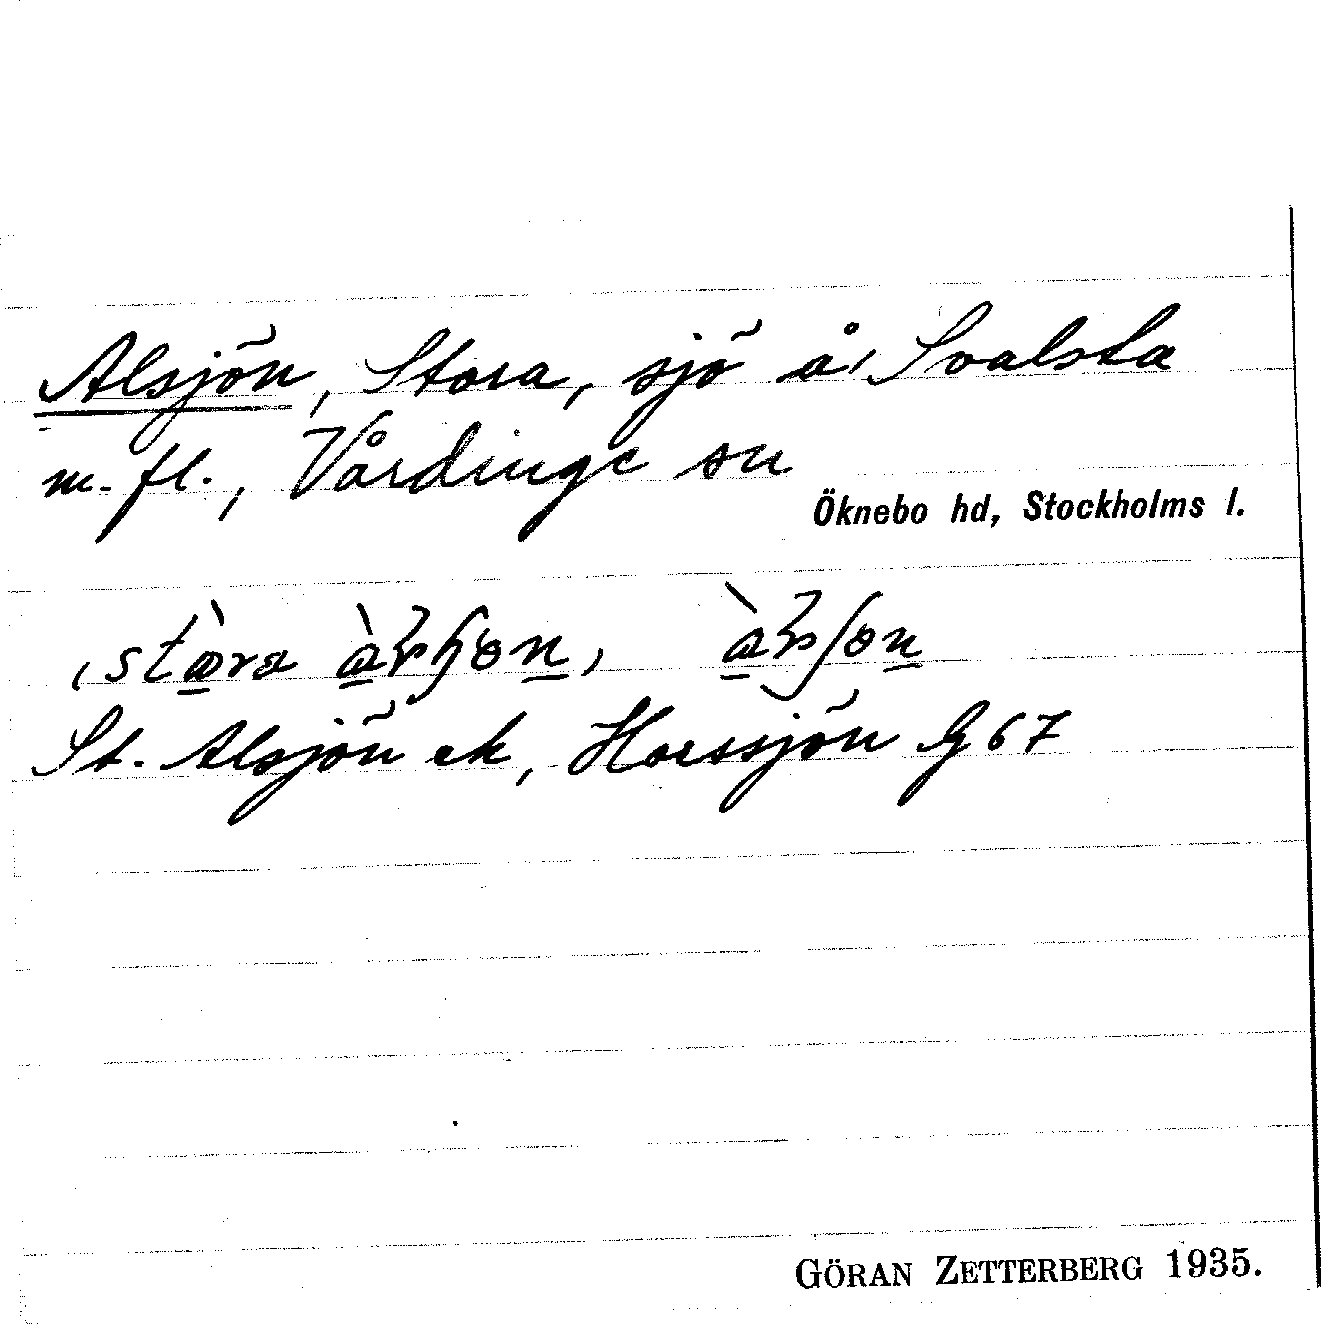 Alsjön, Stora, sjö å, Svalsta
m. fl., Vårdinge sn
Öknebo hd, Stockholms l.
St. Alsjön ek, Horssjön G 67
GÖRAN ZETTERBERG 1935.